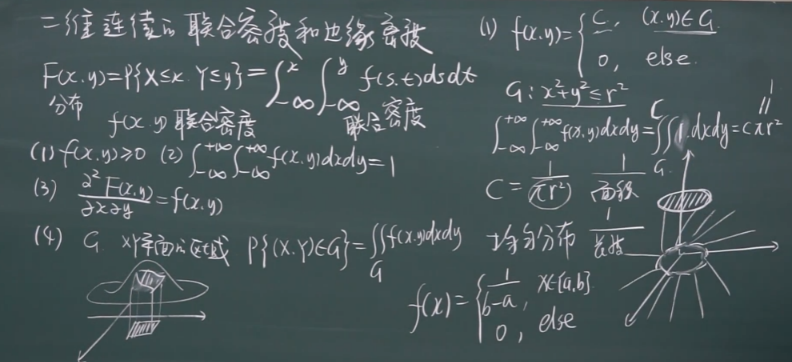 二维连续的联合密度和边缘密度
F(x,y)=P{X≤x, Y≤y}=∫_{-∞}^{x}∫_{-∞}^{y} f(s,t)dsdt
分布
f(x,y) 联合密度 联合密度
(1) f(x,y)≥0 (2) ∫_{-∞}^{+∞}∫_{-∞}^{+∞} f(x,y)dxdy=1
(3) ∂²F(x,y)/∂x∂y=f(x,y)
(4) G XY平面的区域 P{(X,Y)∈G}=∬_G f(x,y)dxdy
(1) f(x,y)={C, (x,y)∈G
0, else.
G: x²+y²≤r²
1
∫_{-∞}^{+∞}∫_{-∞}^{+∞} f(x,y)dxdy=C∬_G 1·dxdy=Cπr²
C=1/(πr²) 1/面积
均匀分布 1/长度
f(x)={1/(b-a), x∈[a,b]
0, else